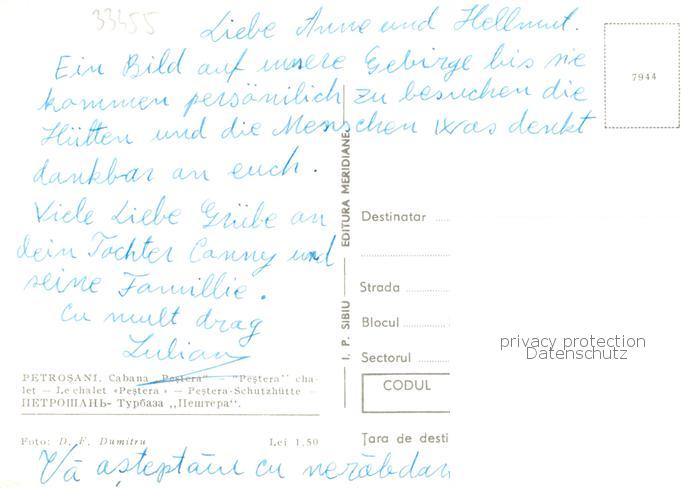 33455
Liebe Anne und Hellmut.
Ein Bild auf unsere Gebirge bis sie
kommen persönilich zu besuchen die
Hütten und die Menschen was denkt
dankbar an euch.
Viele Liebe Grübe an
dein Tochter Conny und
seine Famillie.
Cu mult drag
Iulian
PETROŞANI. Cabana „Peştera" — "Peştera" cha-
let — Le chalet «Peştera» — Peştera-Schutzhütte —
ПЕТРОШАНЬ- Турбаза ,,Пештера".
Foto: D. F. Dumitru Lei 1,50
Vă aşteptăm cu nerăbdar
I. P. SIBIU — EDITURA MERIDIANE
7944
Destinatar
Strada
Blocul
Sectorul
CODUL
Ţara de desti
privacy protection
Datenschutz